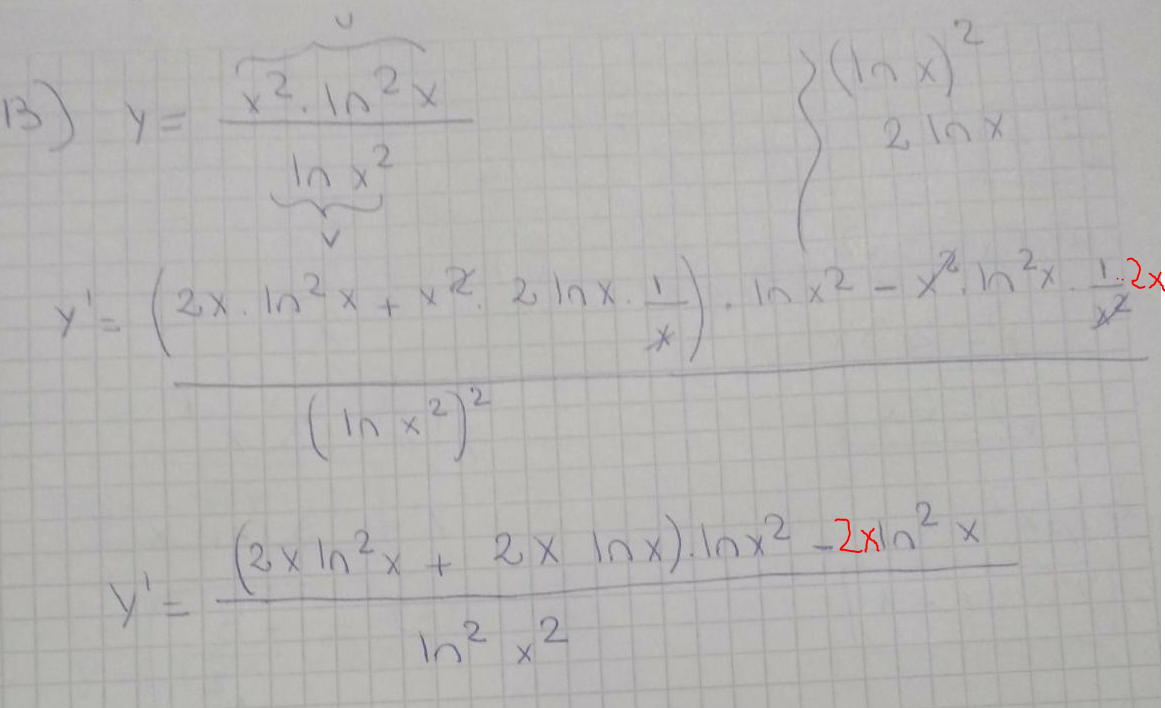 U
13) y = x² · ln² x / ln x²
V
(ln x)²
2 ln x
y' = (2x · ln² x + x² · 2 ln x · 1/x) · ln x² − x² · ln² x · 1/x² · 2x / (ln x²)²
y' = (2x ln² x + 2x ln x) · ln x² − 2x ln² x / ln² x²